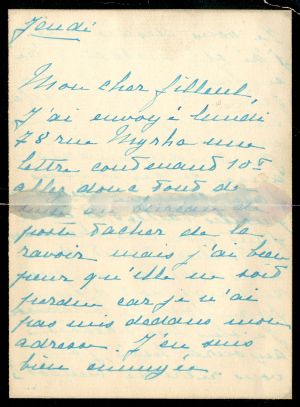 Jeudi
Mon cher filleul,
J'ai envoyé lundi
78 rue Myrha une
lettre contenant 10f
allez donc tout de
suite au bureau de
poste tacher de la
ravoir mais j'ai bien
peur qu'elle ne soit
perdue car je n'ai
pas mis dedans mon
adresse. J'en suis
bien ennuyée